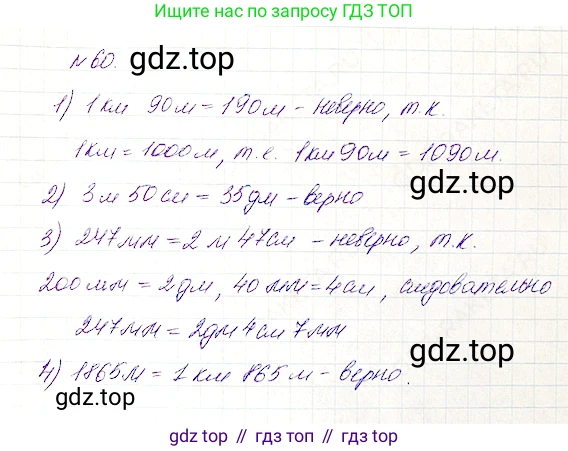 Ищите нас по запросу ГДЗ ТОП
№60. gdz.top
1) 1 км 90 м = 190 м - неверно, т.к.
1км = 1000 м, т.е. 1км 90м = 1090 м.
gdz.top
2) 3 м 50 см = 35 дм - верно
3) 247 мм = 2 м 47 см - неверно, т.к.
200 мм = 2 дм, 40 мм = 4 см, следовательно
247 мм = 2 дм 4 см 7 мм
gdz.top
4) 1865 м = 1 км 865 м - верно.
gdz.top
gdz top // гдз топ // gdz.top